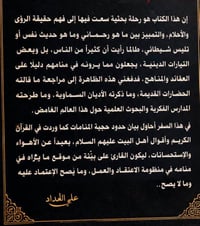 إن هذا الكتاب هو رحلة بحثية سعت فيها إلى فهم حقيقة الرؤى
والأحلام، والتمييز بين ما هو رحماني وما هو حديث نفس أو
تلبيس شيطاني، طالما رأيت أن كثيراً من الناس، بل وبعض
التيارات الدينية، يجعلون مما يرونه في منامهم دليلاً على
العقائد والمناهج، فدفعتني هذه الظاهرة إلى مراجعة ما قالته
الحضارات القديمة، وما ذكرته الأديان السماوية، وما طرحته
المدارس الفكرية والبحوث العلمية حول هذا العالم الغامض.
في هذا السفر أحاول بيان حدود حجية المنامات كما وردت في القرآن الكريم
وأقوال أهل البيت عليهم السلام، بعيداً عن الأهواء
والإستحسانات، ليكون القارئ على بيّنة من موقع ما يراه في
منامه في منظومة الاعتقاد والعمل، وما يصح الإعتماد عليه
وما لا يصح..
علي الفداد